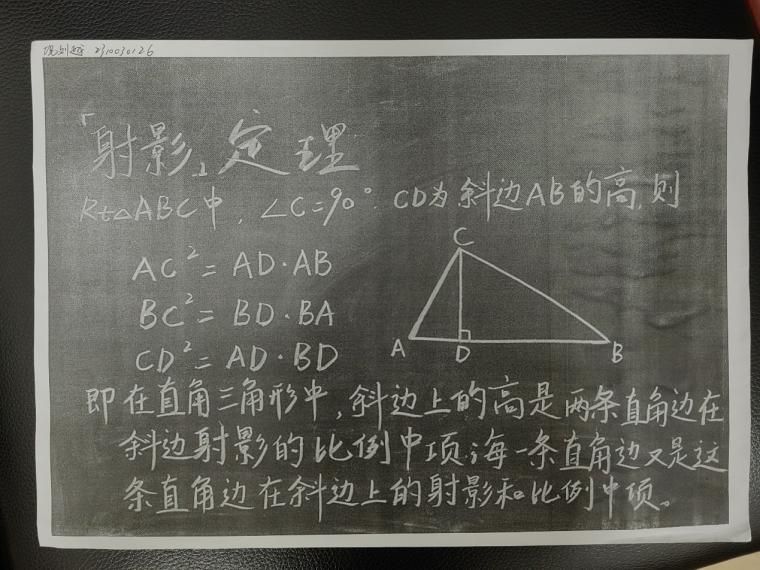 2310030126
「射影」定理
Rt△ABC中，∠C=90°．CD为斜边AB的高，则
AC²=AD·AB
BC²=BD·BA
CD²=AD·BD
C
A
D
B
即在直角三角形中，斜边上的高是两条直角边在
斜边射影的比例中项；每一条直角边又是这
条直角边在斜边上的射影和比例中项。